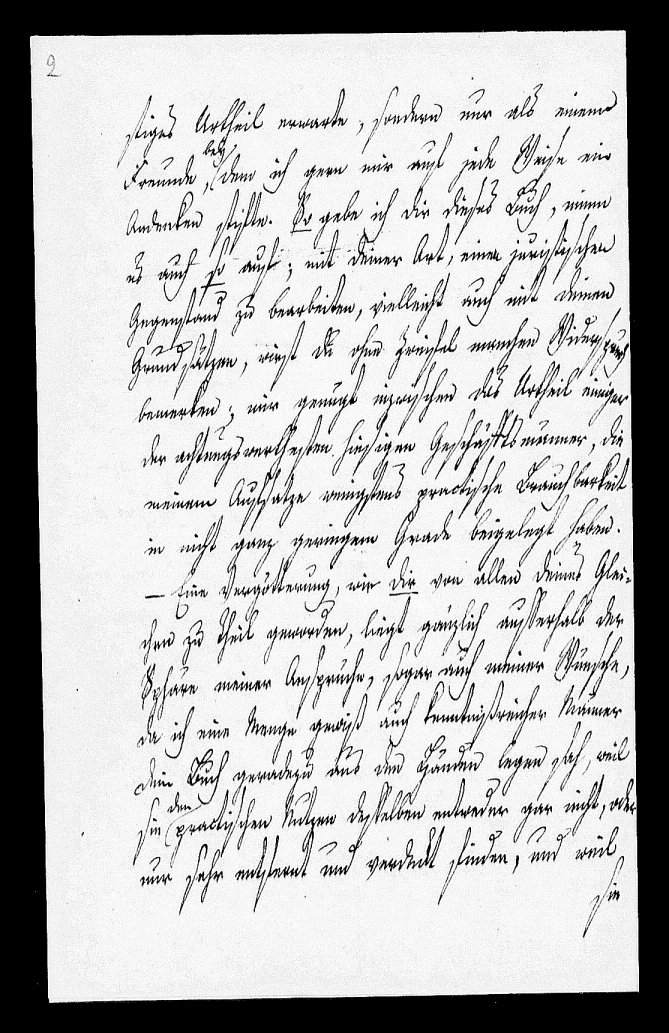 2
stiges Urtheil erwarte, sondern nur als einem
Freunde, bey dem ich gern mir auf jede Weise ein
Andenken stifte. So gebe ich dir dieses Buch, nimm
es auch so auf; mit deiner Art, einen juristischen
Gegenstand zu bearbeiten, vielleicht auch mit deinen
Grundsätzen, wirst du ohne Zweifel manchen Widerspruch
bemerken; mir genügt inzwischen das Urtheil einiger
der achtungswerthesten hiesigen Geschäfftsmänner, die
meinem Aufsatze wenigstens practische Brauchbarkeit
in nicht ganz geringem Grade beigelegt haben.
— Eine Vergötterung, wie dir von allen deines Glei-
chen zu Theil geworden, liegt gänzlich ausserhalb der
Sphäre meiner Ansprüche, sogar auch meiner Wünsche,
da ich eine Menge gewiß auch kenntnißreicher Männer
dein Buch geradezu aus den Händen legen sah, weil
sie den practischen Nutzen desselben entweder gar nicht, oder
nur sehr entfernt und verdeckt finden, und weil
sie